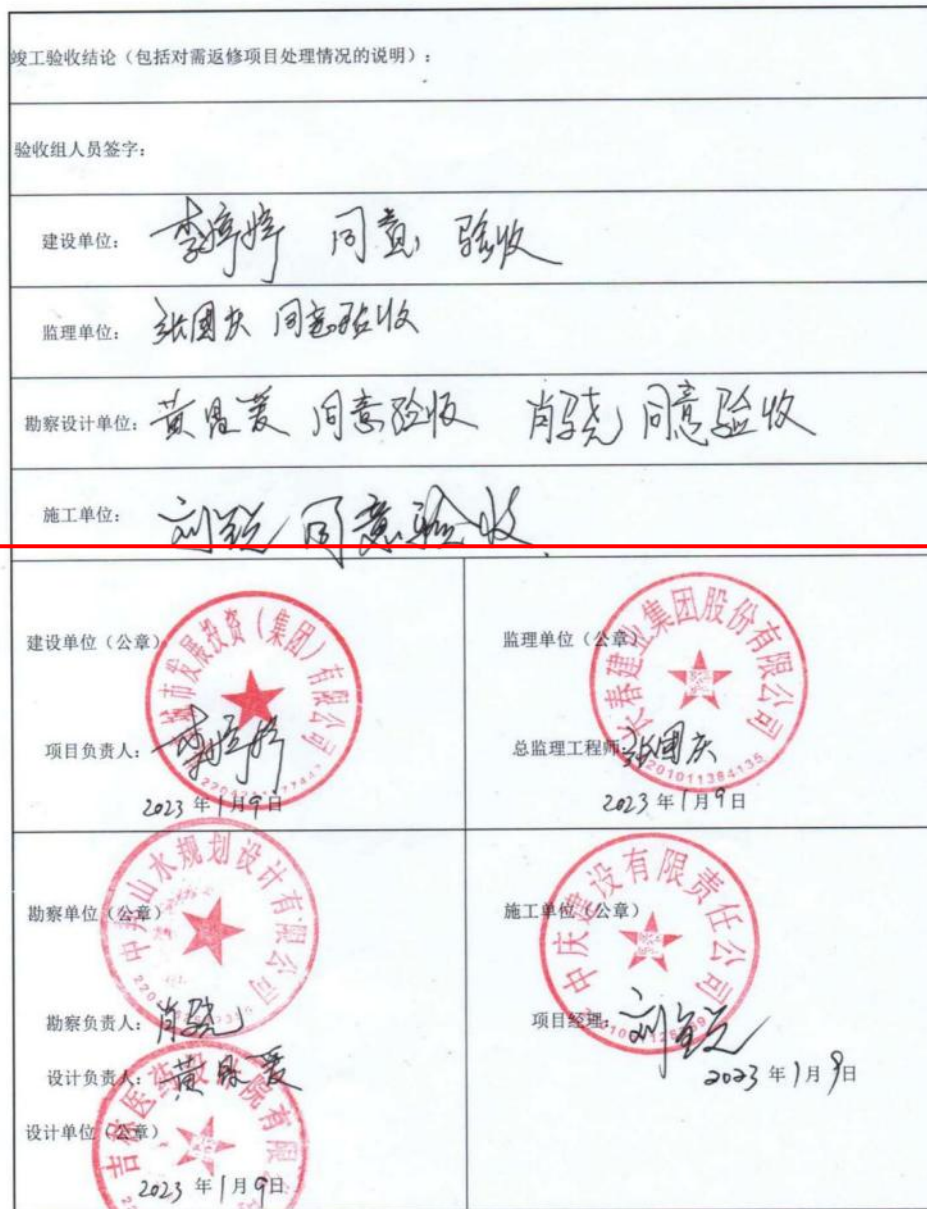 竣工验收结论（包括对需返修项目处理情况的说明）：
验收组人员签字：
建设单位： 李婷婷 同意 验收
监理单位： 张国庆 同意验收
勘察设计单位： 黄 爱 同意验收 肖骁 同意验收
施工单位： 刘 同意验收
建设单位（公章）
市发展投资（集团）有限公司
项目负责人： 李婷婷
2023 年 1 月 9 日
监理单位（公章）
长春建业集团股份有限公司
总监理工程师： 张国庆
201011384135
2023 年 1 月 9 日
勘察单位（公章）
山水规划设计有限公司
勘察负责人： 肖骁
设计负责人： 黄 爱
设计单位（公章）
吉林医药设计院有限
2023 年 1 月 9 日
施工单位（公章）
中庆建设有限责任公司
项目经理： 刘
2023 年 1 月 9 日